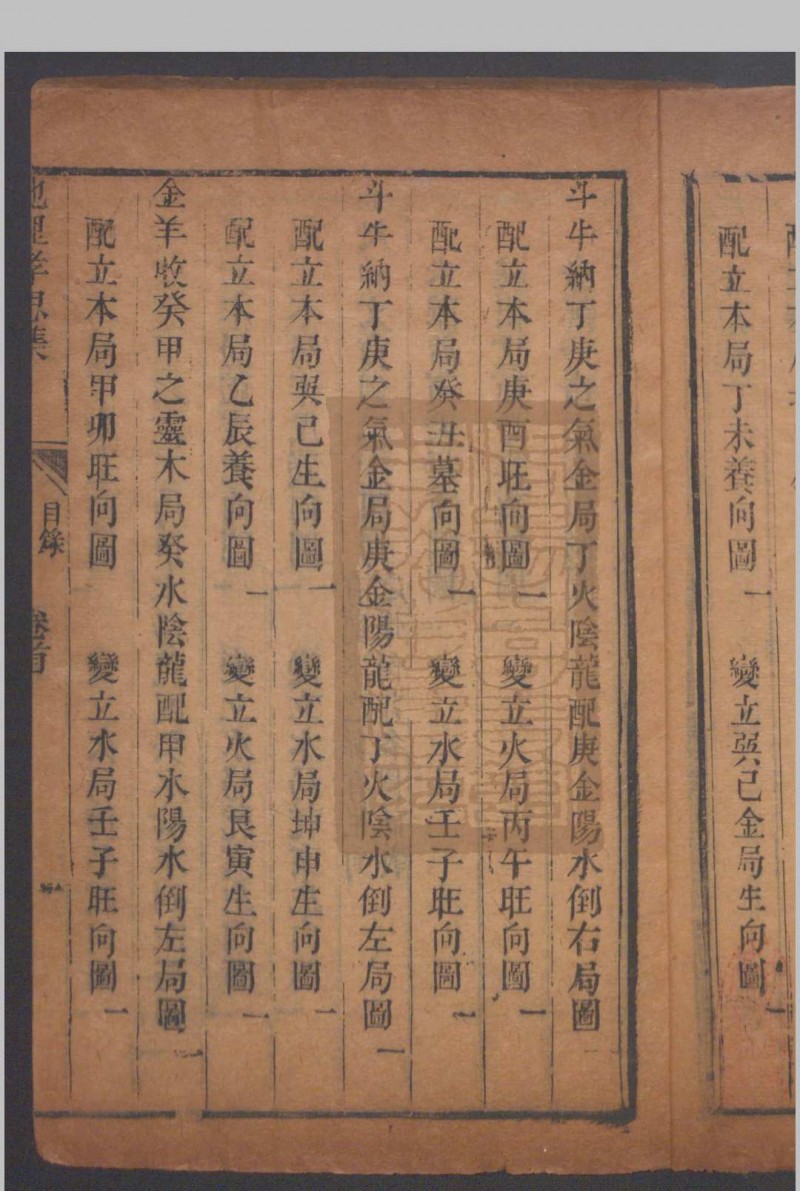 配立本局丁未養向圖一 變立巽已金局生向圖一
斗牛納丁庚之氣金局丁火陰龍配庚金陽水倒右局圖一
配立本局庚酉旺向圖一 變立火局丙午旺向圖一
配立本局癸丑墓向圖一 變立水局壬子旺向圖一
斗牛納丁庚之氣金局庚金陽龍配丁火陰水倒左局圖一
配立本局巽己生向圖一 變立水局坤申生向圖一
配立本局乙辰養向圖一 變立火局艮寅生向圖一
金羊收癸甲之靈木局癸水陰龍配甲木陽水倒左局圖一
配立本局甲卯旺向圖 變立水局壬子旺向圖一
目錄 卷首